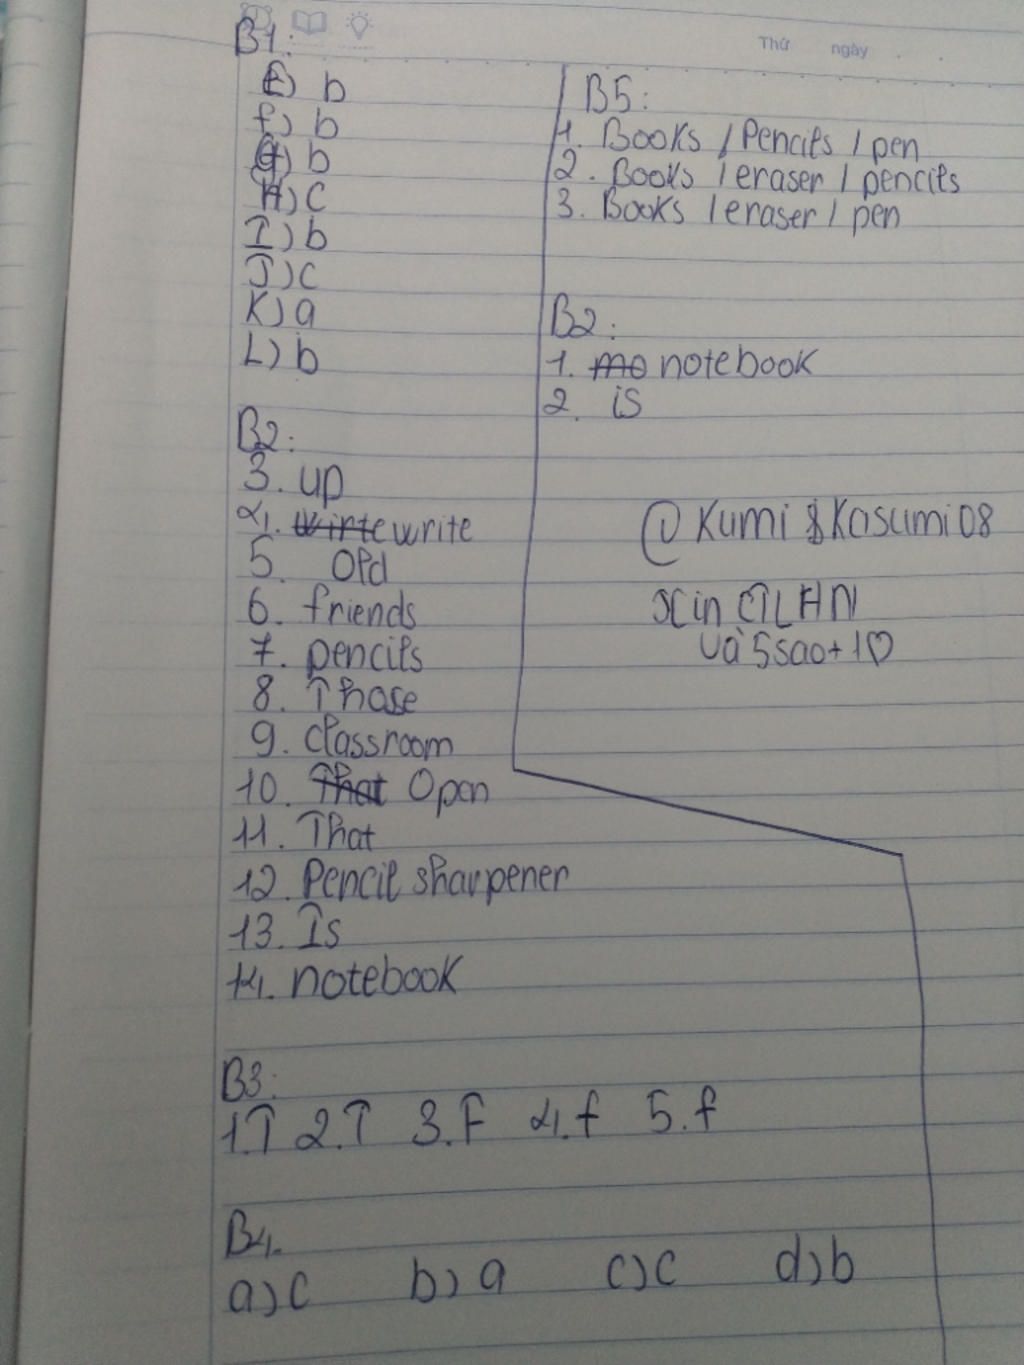 Thứ ngày
B1:
E) b
f) b
G) b
H) C
I) b
J) C
K) a
L) b
B2:
3. up
4. write
5. Old
6. friends
7. pencils
8. Those
9. classroom
10. That Open
11. That
12. Pencil sharpener
13. Is
14. notebook
B3:
1.T 2.T 3.F 4.f 5.f
B4.
a) C b) a c) c d) b
B5:
1. Books / Pencils / pen
2. Books / eraser / pencils
3. Books / eraser / pen
B2:
1. mo notebook
2. is
@Kumi&Kasumi08
Xin CTLHN
và 5sao+1♡